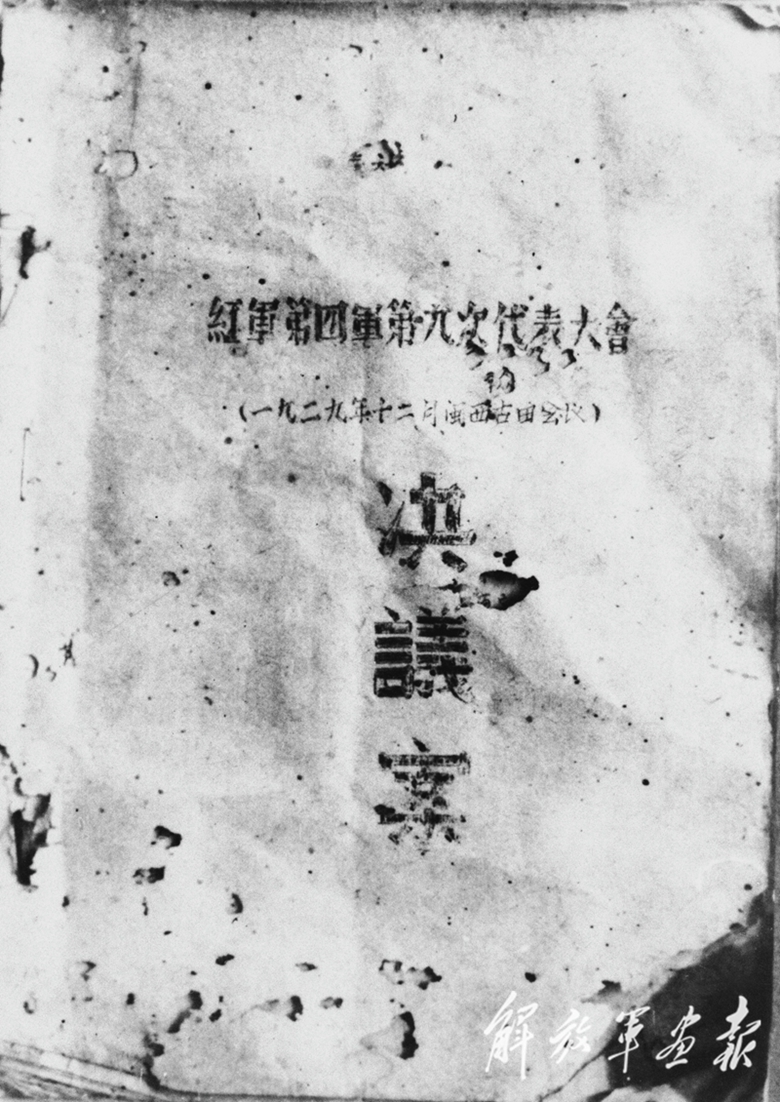 紅軍第四軍第九次代表大會
(一九二九年十二月闽西古田会议)
決
議
案
解放军画报